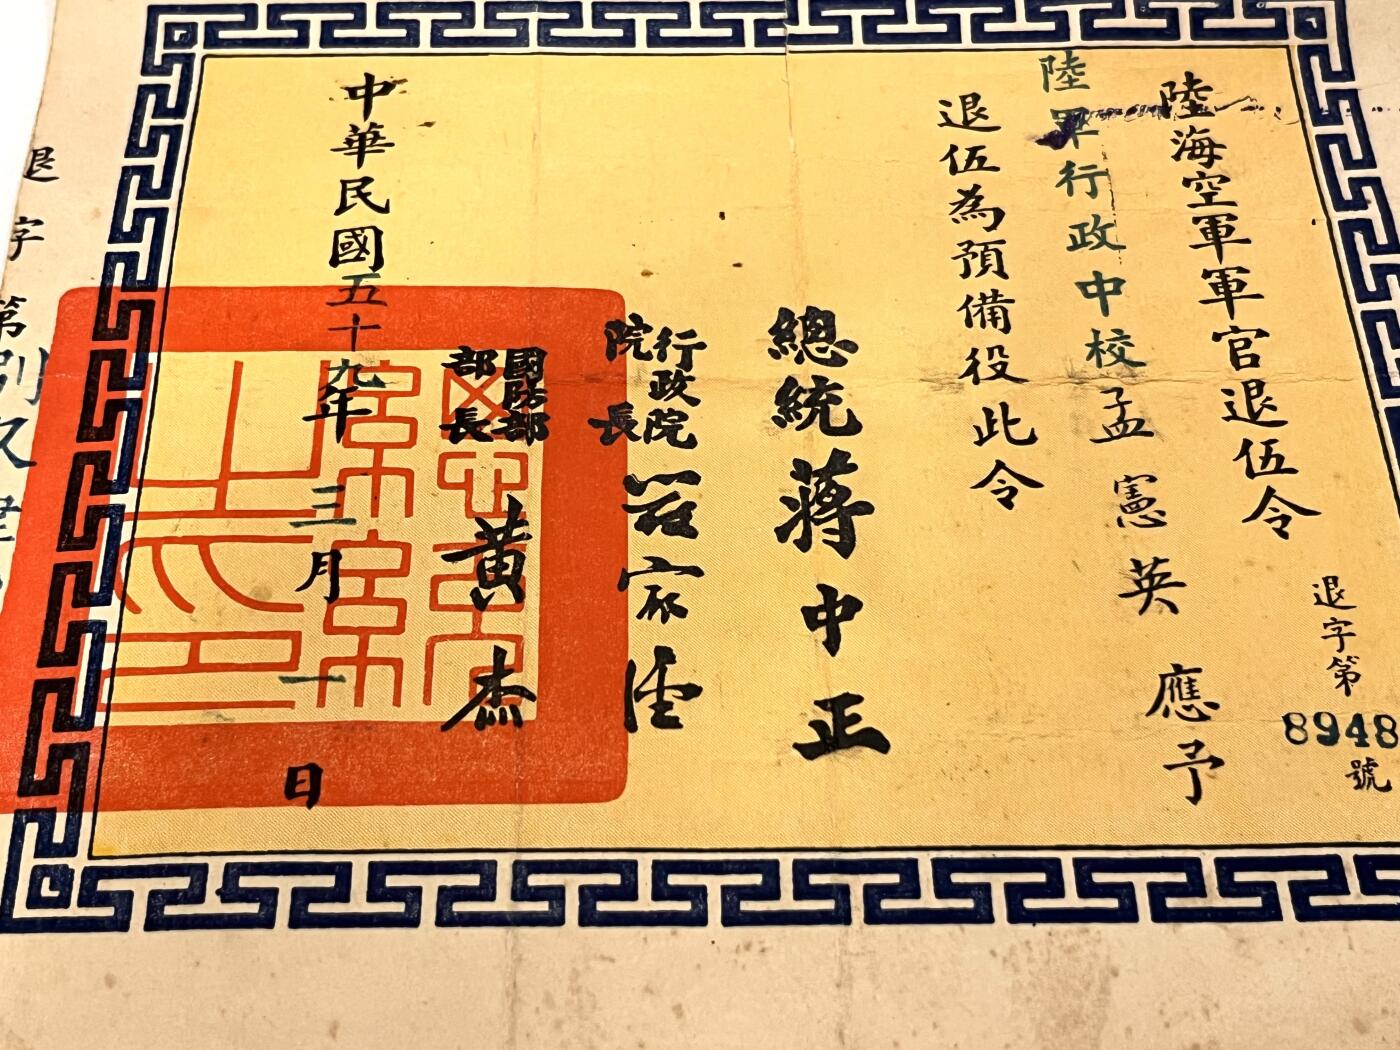 陸海空軍軍官退伍令
退字第
8948
號
陸軍行政中校孟憲英應予
退伍為預備役此令
總統蔣中正
行政院
院長
嚴家淦
國防部
部長
黃杰
中華民國五十九年三月一日
總統之印
退字第